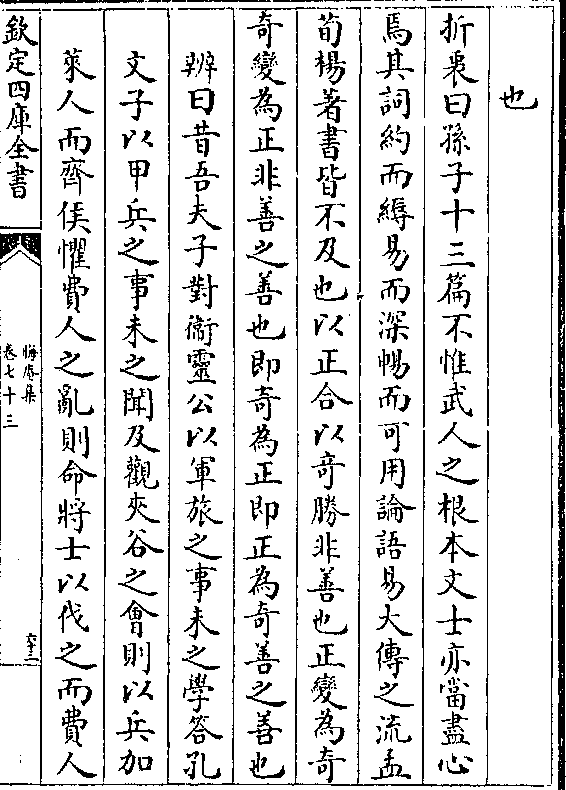 也
折衷曰孫子十三篇不惟武人之根本文士亦當盡心
焉其詞約而縟易而深暢而可用論語易大傳之流孟
荀楊著書皆不及也以正合以竒勝非善也正變為奇
奇變為正非善之善也即奇為正即正為奇善之善也
辨曰昔吾夫子對衞靈公以軍旅之事未之學答孔
文子以甲兵之事未之聞及觀夾谷之㑹則以兵加
萊人而齊侯懼費人之亂則命將士以伐之而費人
欽定四庫全書
晦庵集
卷七十三
六十三